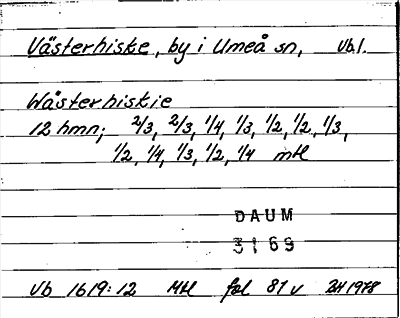 Västerhiske, by i Umeå sn, Vb.l.
Wåsterhiskie
12 hmn; 2/3, 2/3, 1/4, 1/3, 1/2, 1/2, 1/3,
1/2, 1/4, 1/3, 1/2, 1/4 mtl
DAUM
3169
Vb 1619:12 Mtl fol 81 v 1978